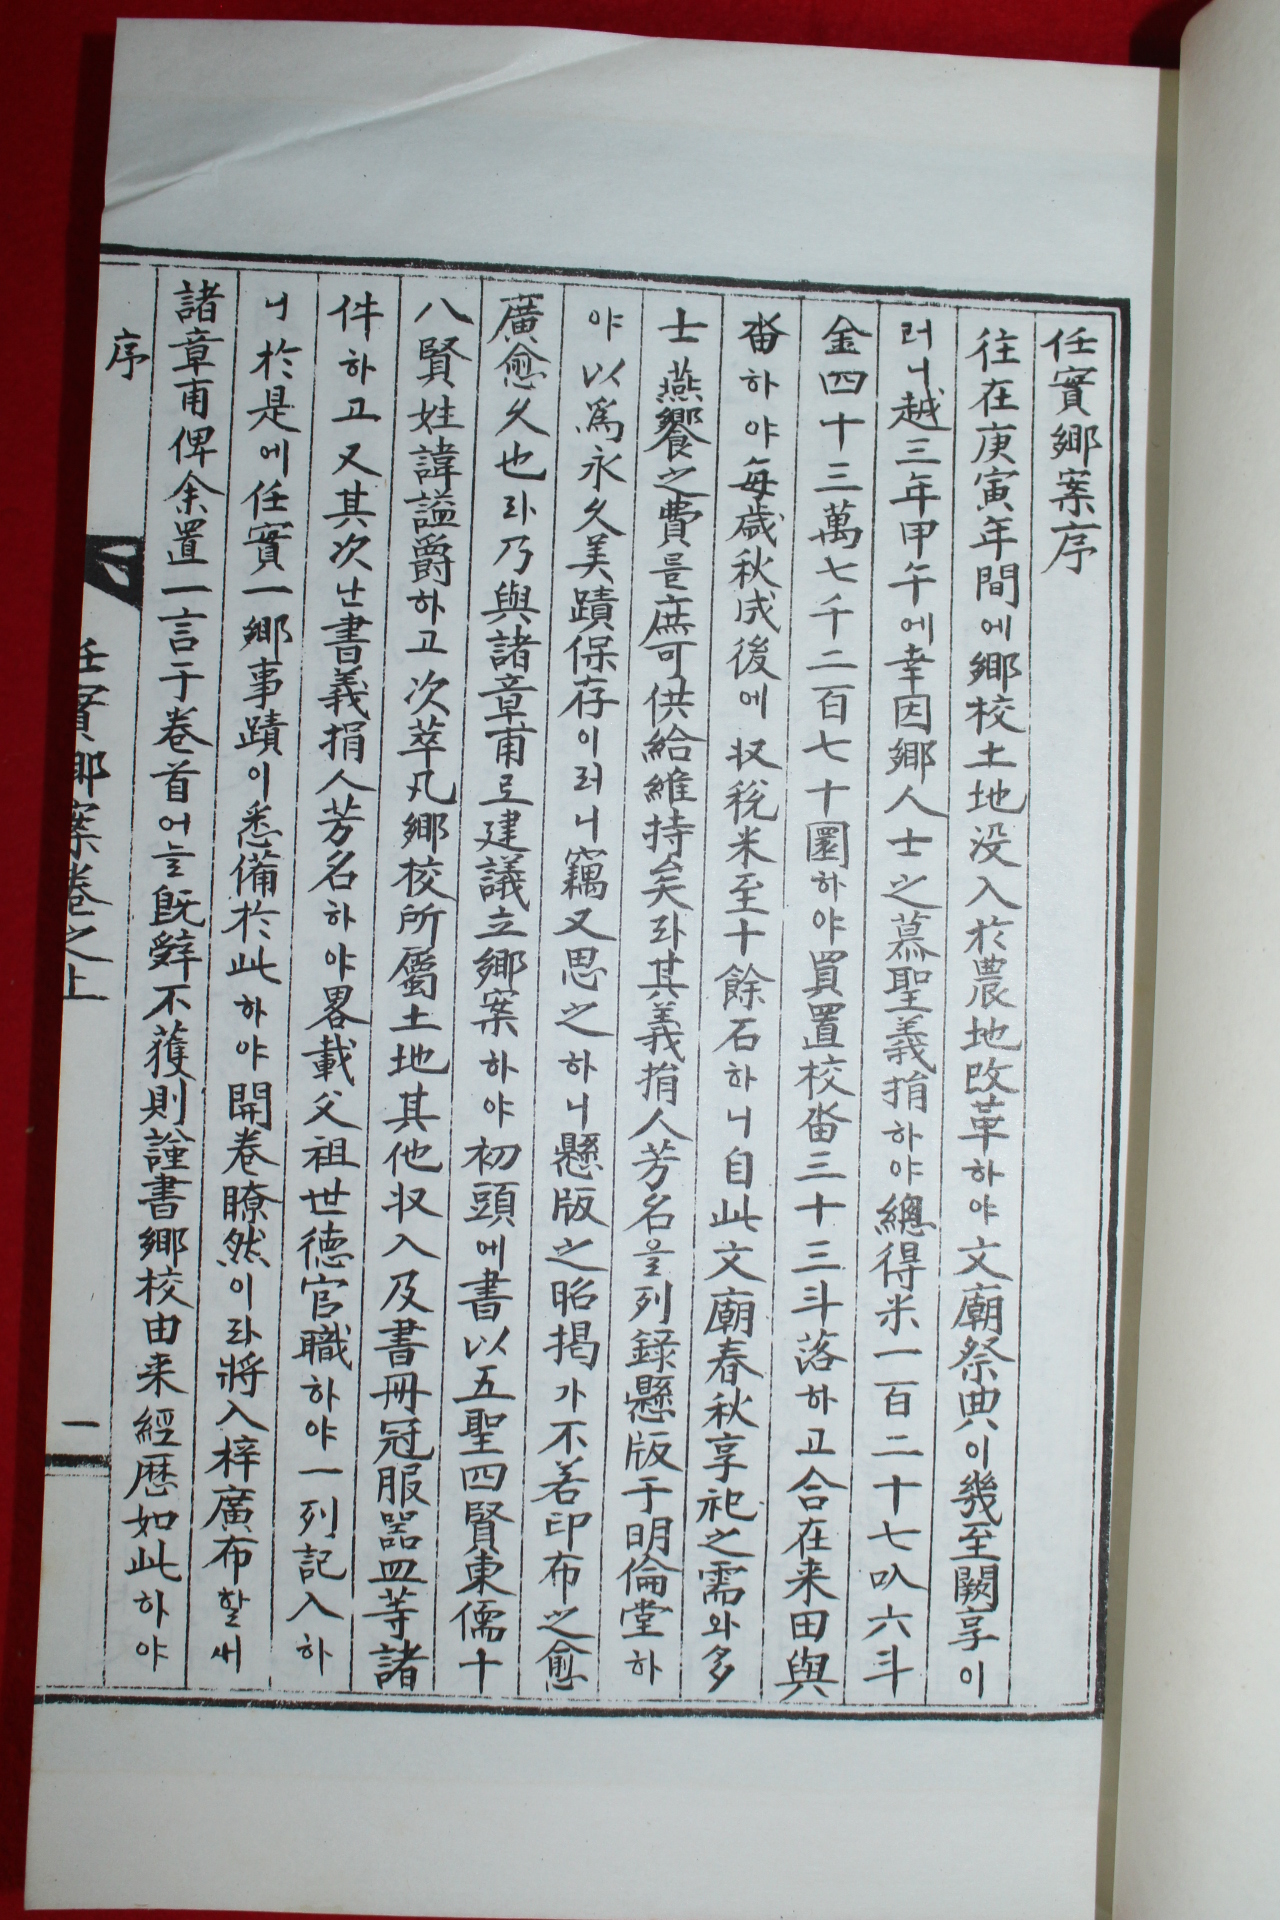 任實鄕案序
往在庚寅年間에鄕校土地没入於農地改革하야文廟祭典이幾至闕享이
러니越三年甲午에幸因鄕人士之慕聖義捐하야總得米一百二十七叺六斗
金四十三萬七千二百七十圜하야買置校畓三十三斗落하고合在来田與
畓하야每歲秋成後에収稅米至十餘石하니自此文廟春秋享祀之需와多
士燕饗之費를庶可供給維持矣라其義捐人芳名을列錄懸版于明倫堂하
야以爲永久美蹟保存이러니竊又思之하니懸版之昭揭가不若印布之愈
廣愈久也라乃與諸章甫로建議立鄕案하야初頭에書以五聖四賢東儒十
八賢姓諱謚爵하고次萃凡鄕校所屬土地其他収入及書冊冠服器皿等諸
件하고又其次난書義捐人芳名하야畧載父祖世德官職하야一列記入하
니於是에任實一鄕事蹟이悉備於此하야開卷瞭然이라將入梓廣布할새
諸章甫俾余置一言于卷首어늘既辭不獲則謹書鄕校由来經歷如此하야
序
任實鄕案卷之上
一